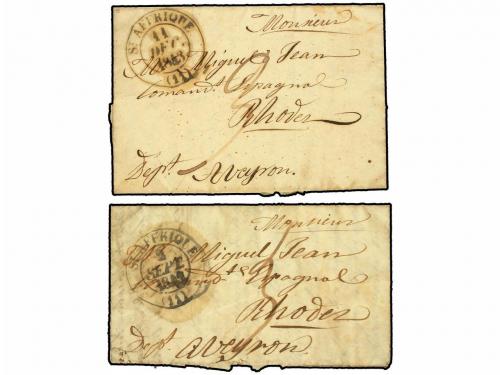 ST AFFRIQUE
11
DEC.
1843
(11)
Monsieur
Miguel Jean
Comandt Espagnol
Rhodez
Dept Aveyron.
ST AFFRIQUE
SEPT.
(11)
Monsieur
Dn Miguel Jean
Espagnol
Rhodez
Dept Aveyron.